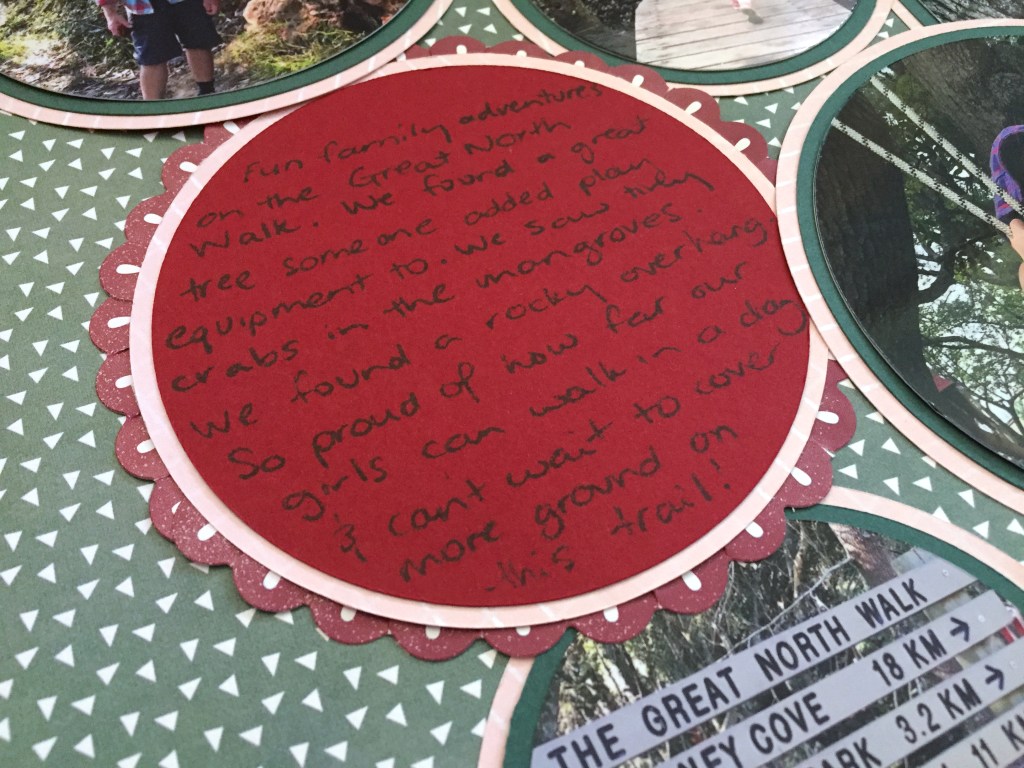 Fun family adventures
on the Great North
Walk. We found a great
tree someone added play
equipment to. We saw tiny
crabs in the mangroves.
We found a rocky overhang
So proud of how far our
girls can walk in a day
& can't wait to cover
more ground on
this trail!
THE GREAT NORTH WALK
NEY COVE 18 KM →
ARK 3.2 KM →
11 K